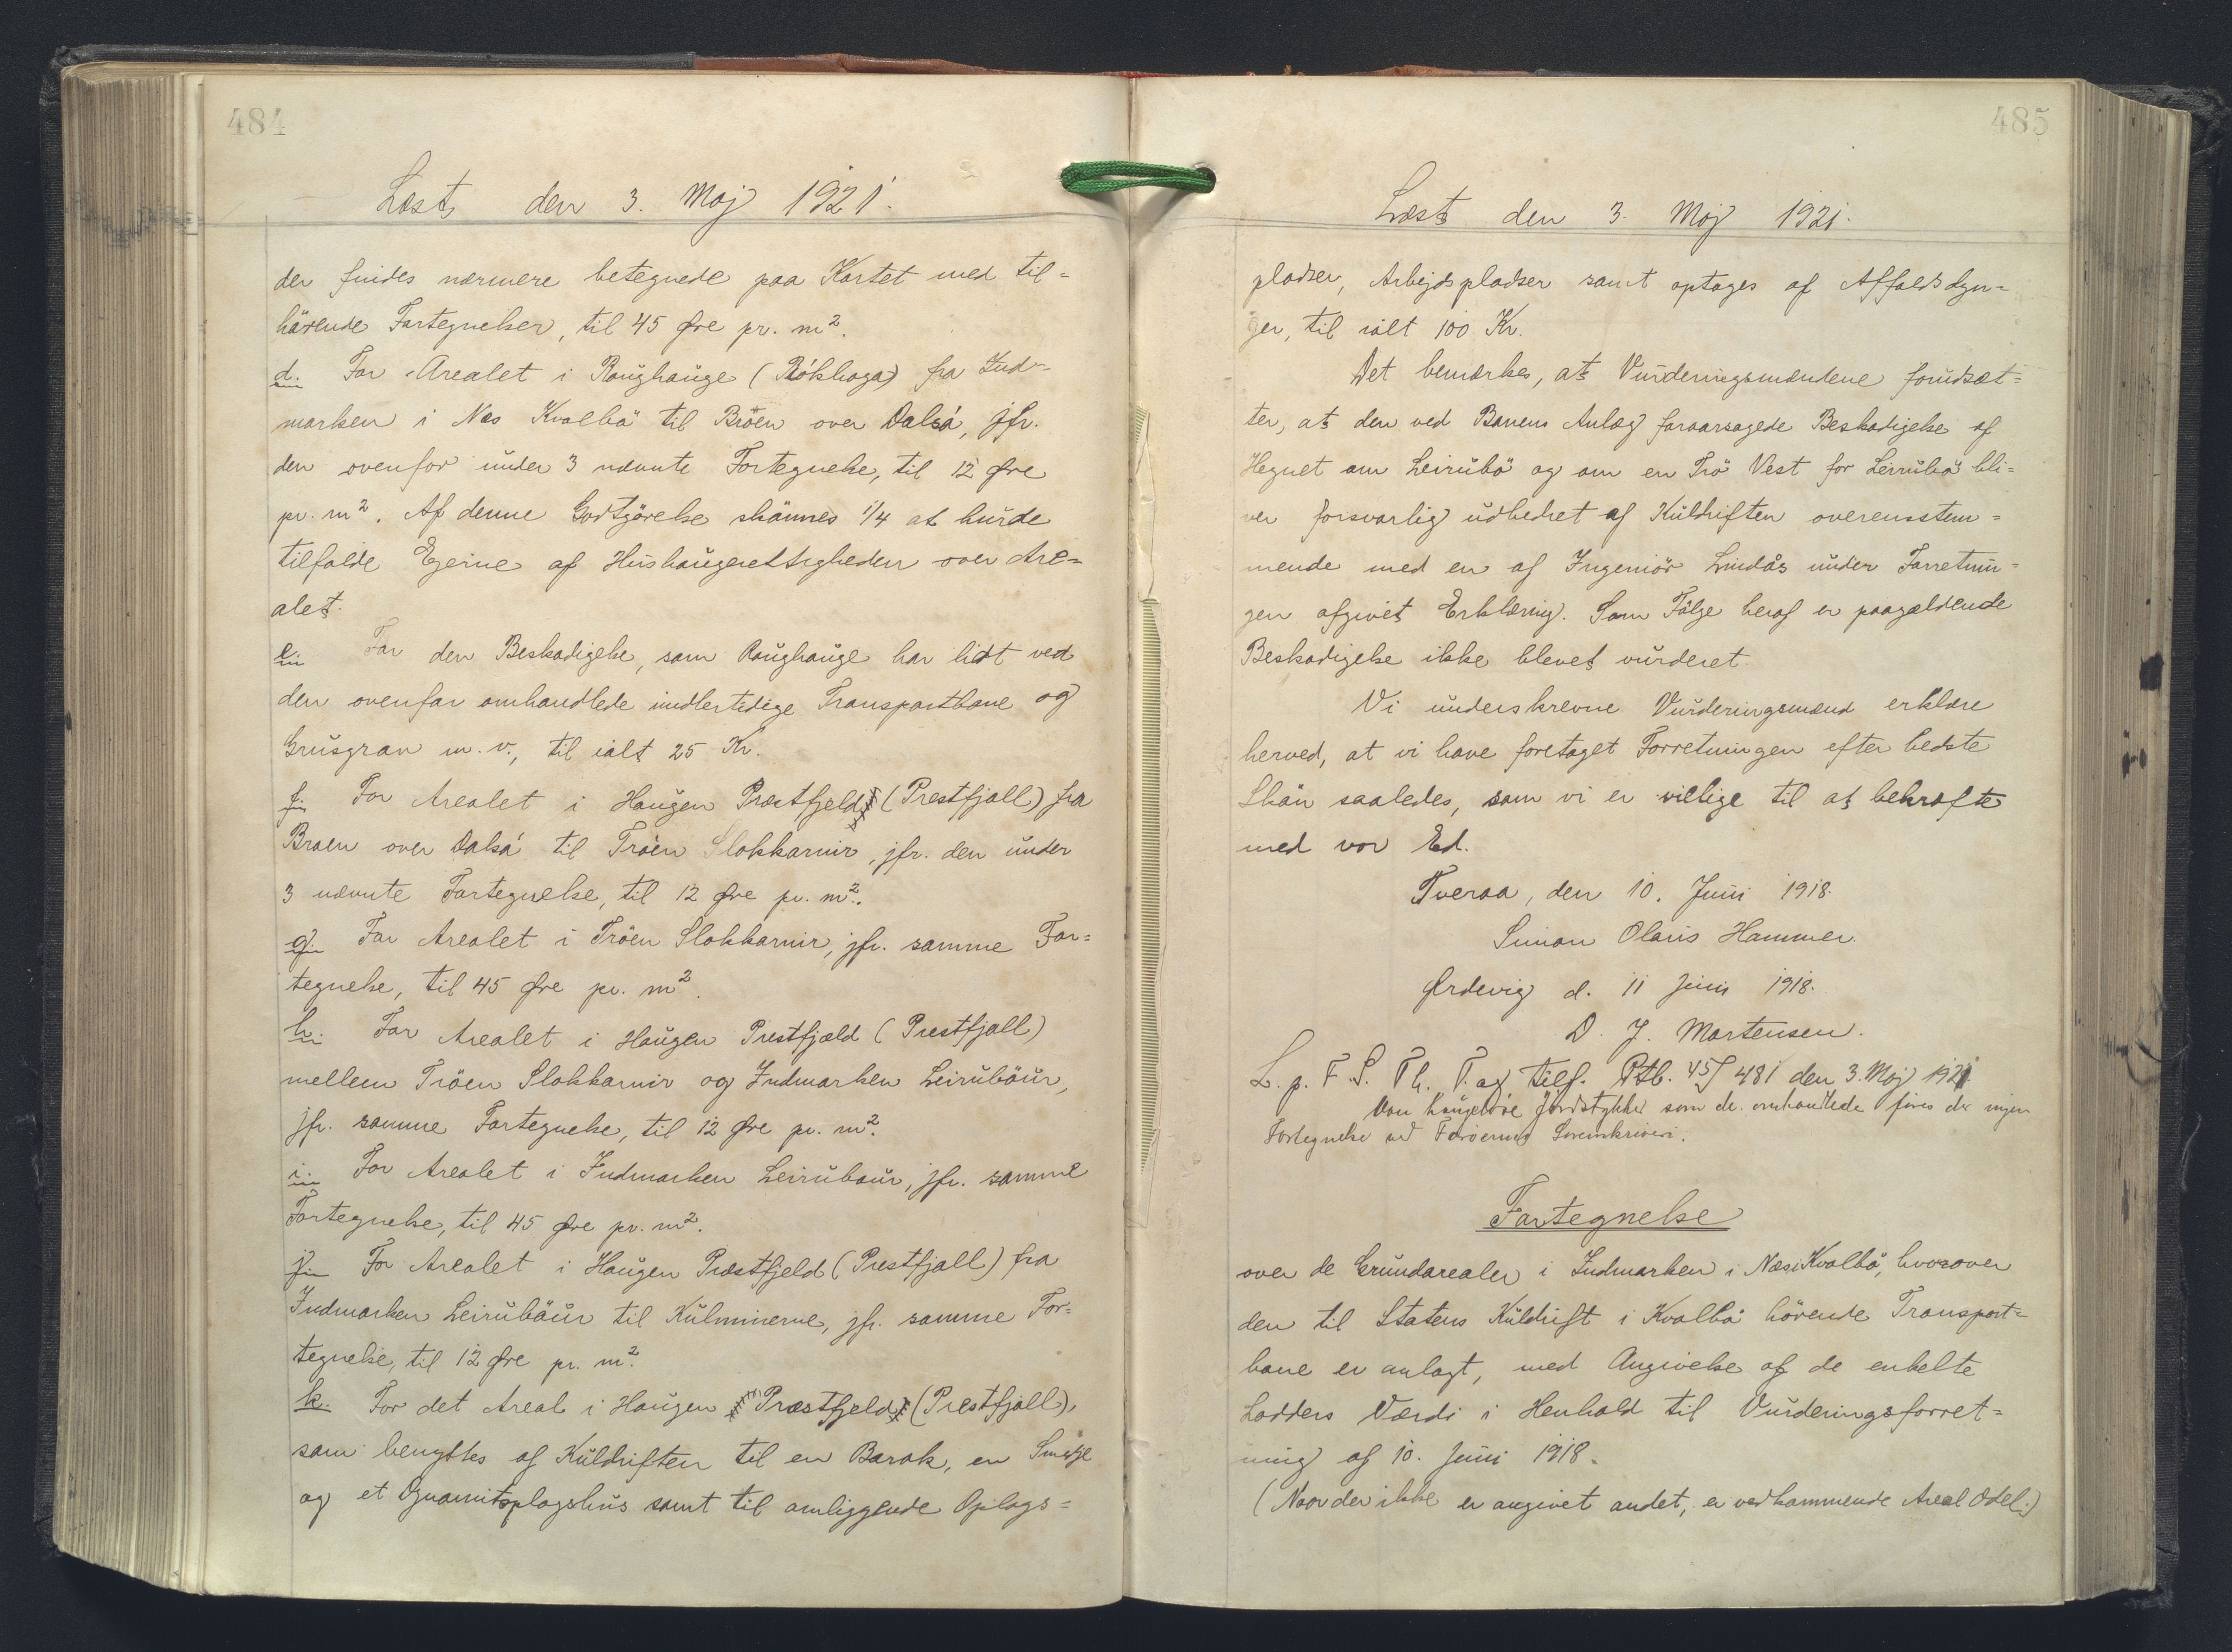 484
Læst den 3. Maj 1921.
der findes nærmere betegnede paa Kortet med til=
hörende Fortegnelser, til 45 Øre pr. m².
d. For Arealet i Roughauge (Rókhaga) fra Ind-
marken i Næs Kvalbö til Bröen over Dalsá, jfr.
den ovenfor under 3 nævnte Fortegnelse, til 12 Øre
pr. m². Af denne Godtgörelse skönnes 1/4 at burde
tilfalde Ejerne af Hushaugerettigheden over Are=
alet.
e. For den Beskadigelse, som Roughauge har lidt ved
den ovenfor omhandlede midlertidige Transportbane og
Grusgrav m. v., til ialt 25 Kr.
f. For Arealet i Haugen Præstfjeld (Prestfjall) fra
Broen over Dalsá til Tröen Slokkarnir, jfr. den under
3 nævnte Fortegnelse, til 12 Øre pr. m².
g. For Arealet i Tröen Slokkarnir, jfr. samme For=
tegnelse, til 45 Øre pr. m².
h. For Arealet i Haugen Prestfjæld (Prestfjall)
mellem Tröen Slokkarnir og Indmarken Leiruböur,
jfr. samme Fortegnelse, til 12 Øre pr. m².
i. For Arealet i Indmarken Leirubour, jfr. samme
Fortegnelse, til 45 Øre pr. m².
j. For Arealet i Haugen Præstfjeld (Prestfjall) fra
Indmarken Leiruböur til Kulminerne, jfr. samme For=
tegnelse, til 12 Øre pr. m².
k. For det Areal i Haugen Præstfjeld (Prestfjall),
som benyttes af Kuldriften til en Barak, en Smedje
og et Dynamitoplagshus samt til omliggende Oplags=
485
Læst den 3. Maj 1921.
pladser, Arbejdspladser samt optages af Affaldsdyn=
ger, til ialt 100 Kr.
Det bemærkes, at Vurderingsmændene forudsæt=
ter, at den ved Banens Anlæg foraarsagede Beskadigelse af
Hegnet om Leirubö og om en Trö Vest for Leirubö bli=
ver forsvarlig udbedret af Kuldriften overensstem=
mende med en af Ingeniör Lindås under Forretnin=
gen afgivet Erklæring. Som Fölge heraf er paagældende
Beskadigelse ikke blevet vurderet.
Vi underskrevne Vurderingsmænd erklære
herved, at vi have foretaget Forretningen efter bedste
Skön saaledes, som vi er villige til at bekræfte
med vor Ed.
Tveraa, den 10. Juni 1918.
Simon Olavis Hammer.
Ørdevig d. 11 Juni 1918.
D. J. Mortensen.
L. p. F. S. Th. T. og tilf. Ptb. 481 den 3. Maj 1921
Over saadanne Jordstykker som de omhandlede föres der ingen
Fortegnelse ved Færöernes Sorenskriveri.
Fortegnelse
over de Grundarealer i Indmarken i Næs i Kvalbö, hvorover
den til Statens Kuldrift i Kvalbö hörende Transport=
bane er anlagt, med Angivelse af de enkelte
Lodders Værdi i Henhold til Vurderingsforret=
ning af 10. Juni 1918.
(Naar der ikke er angivet andet, er vedkommende Areal Odel.)